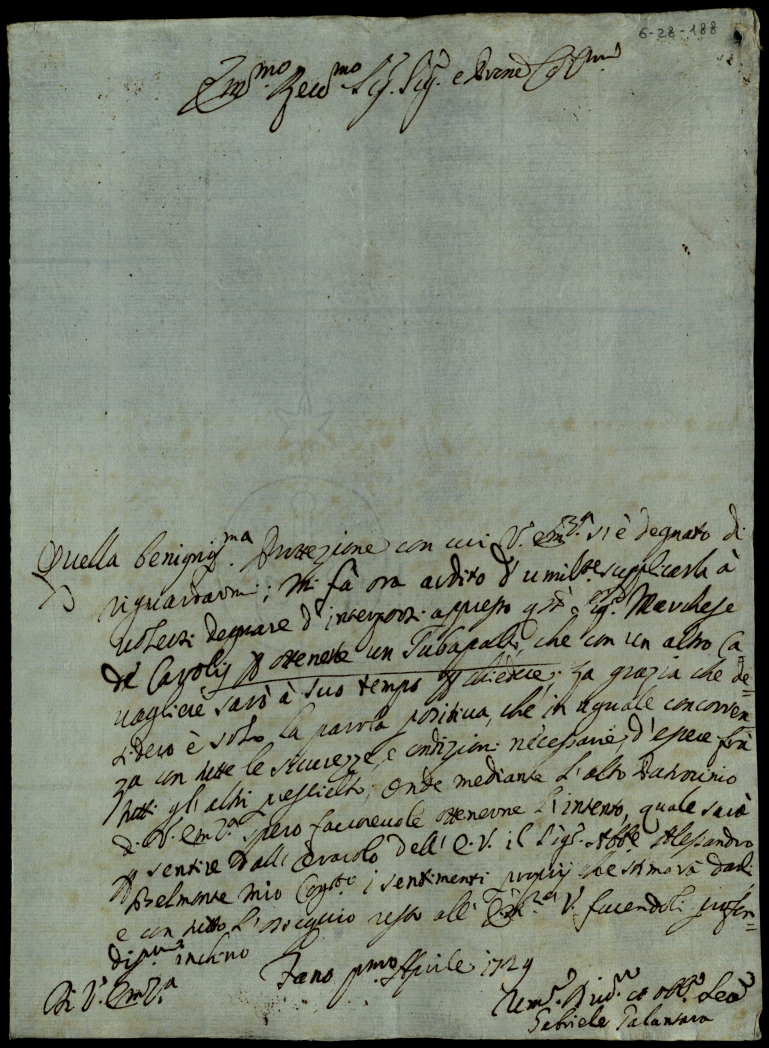 6-28-188
Em.mo Reu.mo Sig. Sig. e Prone Col.mo
Quella benignis.ma Protezione con cui V. Em.za si è degnato di
riguardarmi; Mi fà ora ardito d'umil.te supplicarla à
volersi degnare d'interporsi appresso Sig.r Marchese
de Carolis p ottenere un Tubapalti, che con un altro Ca=
vagliere sarò à suo tempo p chiedere; La grazia che de=
sidero è solo la parola positiva, che in uguale concorren=
za con tutte le sicurezze, e condizioni necessarie, d'essere frà
tutti gl'altri prescielto, Onde mediante l'alto Patrocinio
di V. Em.za spero favorevole ottenerne l'intento, quale sarà
p sentire dall'oracolo dell'E.V. il Sig.r Abbe Alessandro
Belmonte mio i sentimenti proprij che stimarà darli
e con tutto l'ossequio resto all'Em.za V. facendoli profon=
diss.mo inchino
Di V. Em.za
Fano pmo Aprile 1729
Um.o Diu.o et obb.o Ser.e
Gabriele Palantara